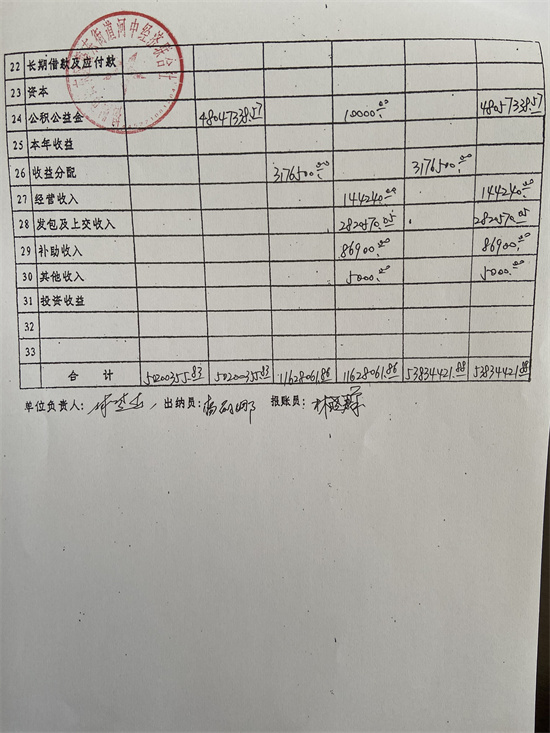 街道河中经济
22 长期借款及应付款
23 资本
24 公积公益金 48047338.57 10000.00 48057338.57
25 本年收益
26 收益分配 3176500.00 3176500.00
27 经营收入 144240.00 144240.00
28 发包及上交收入 282570.05 282570.05
29 补助收入 86900.00 86900.00
30 其他收入 5000.00 5000.00
31 投资收益
32
33
合 计 50200355.83 50200355.83 11628061.86 11628061.86 53834421.88 53834421.88
单位负责人: 出纳员: 报账员: